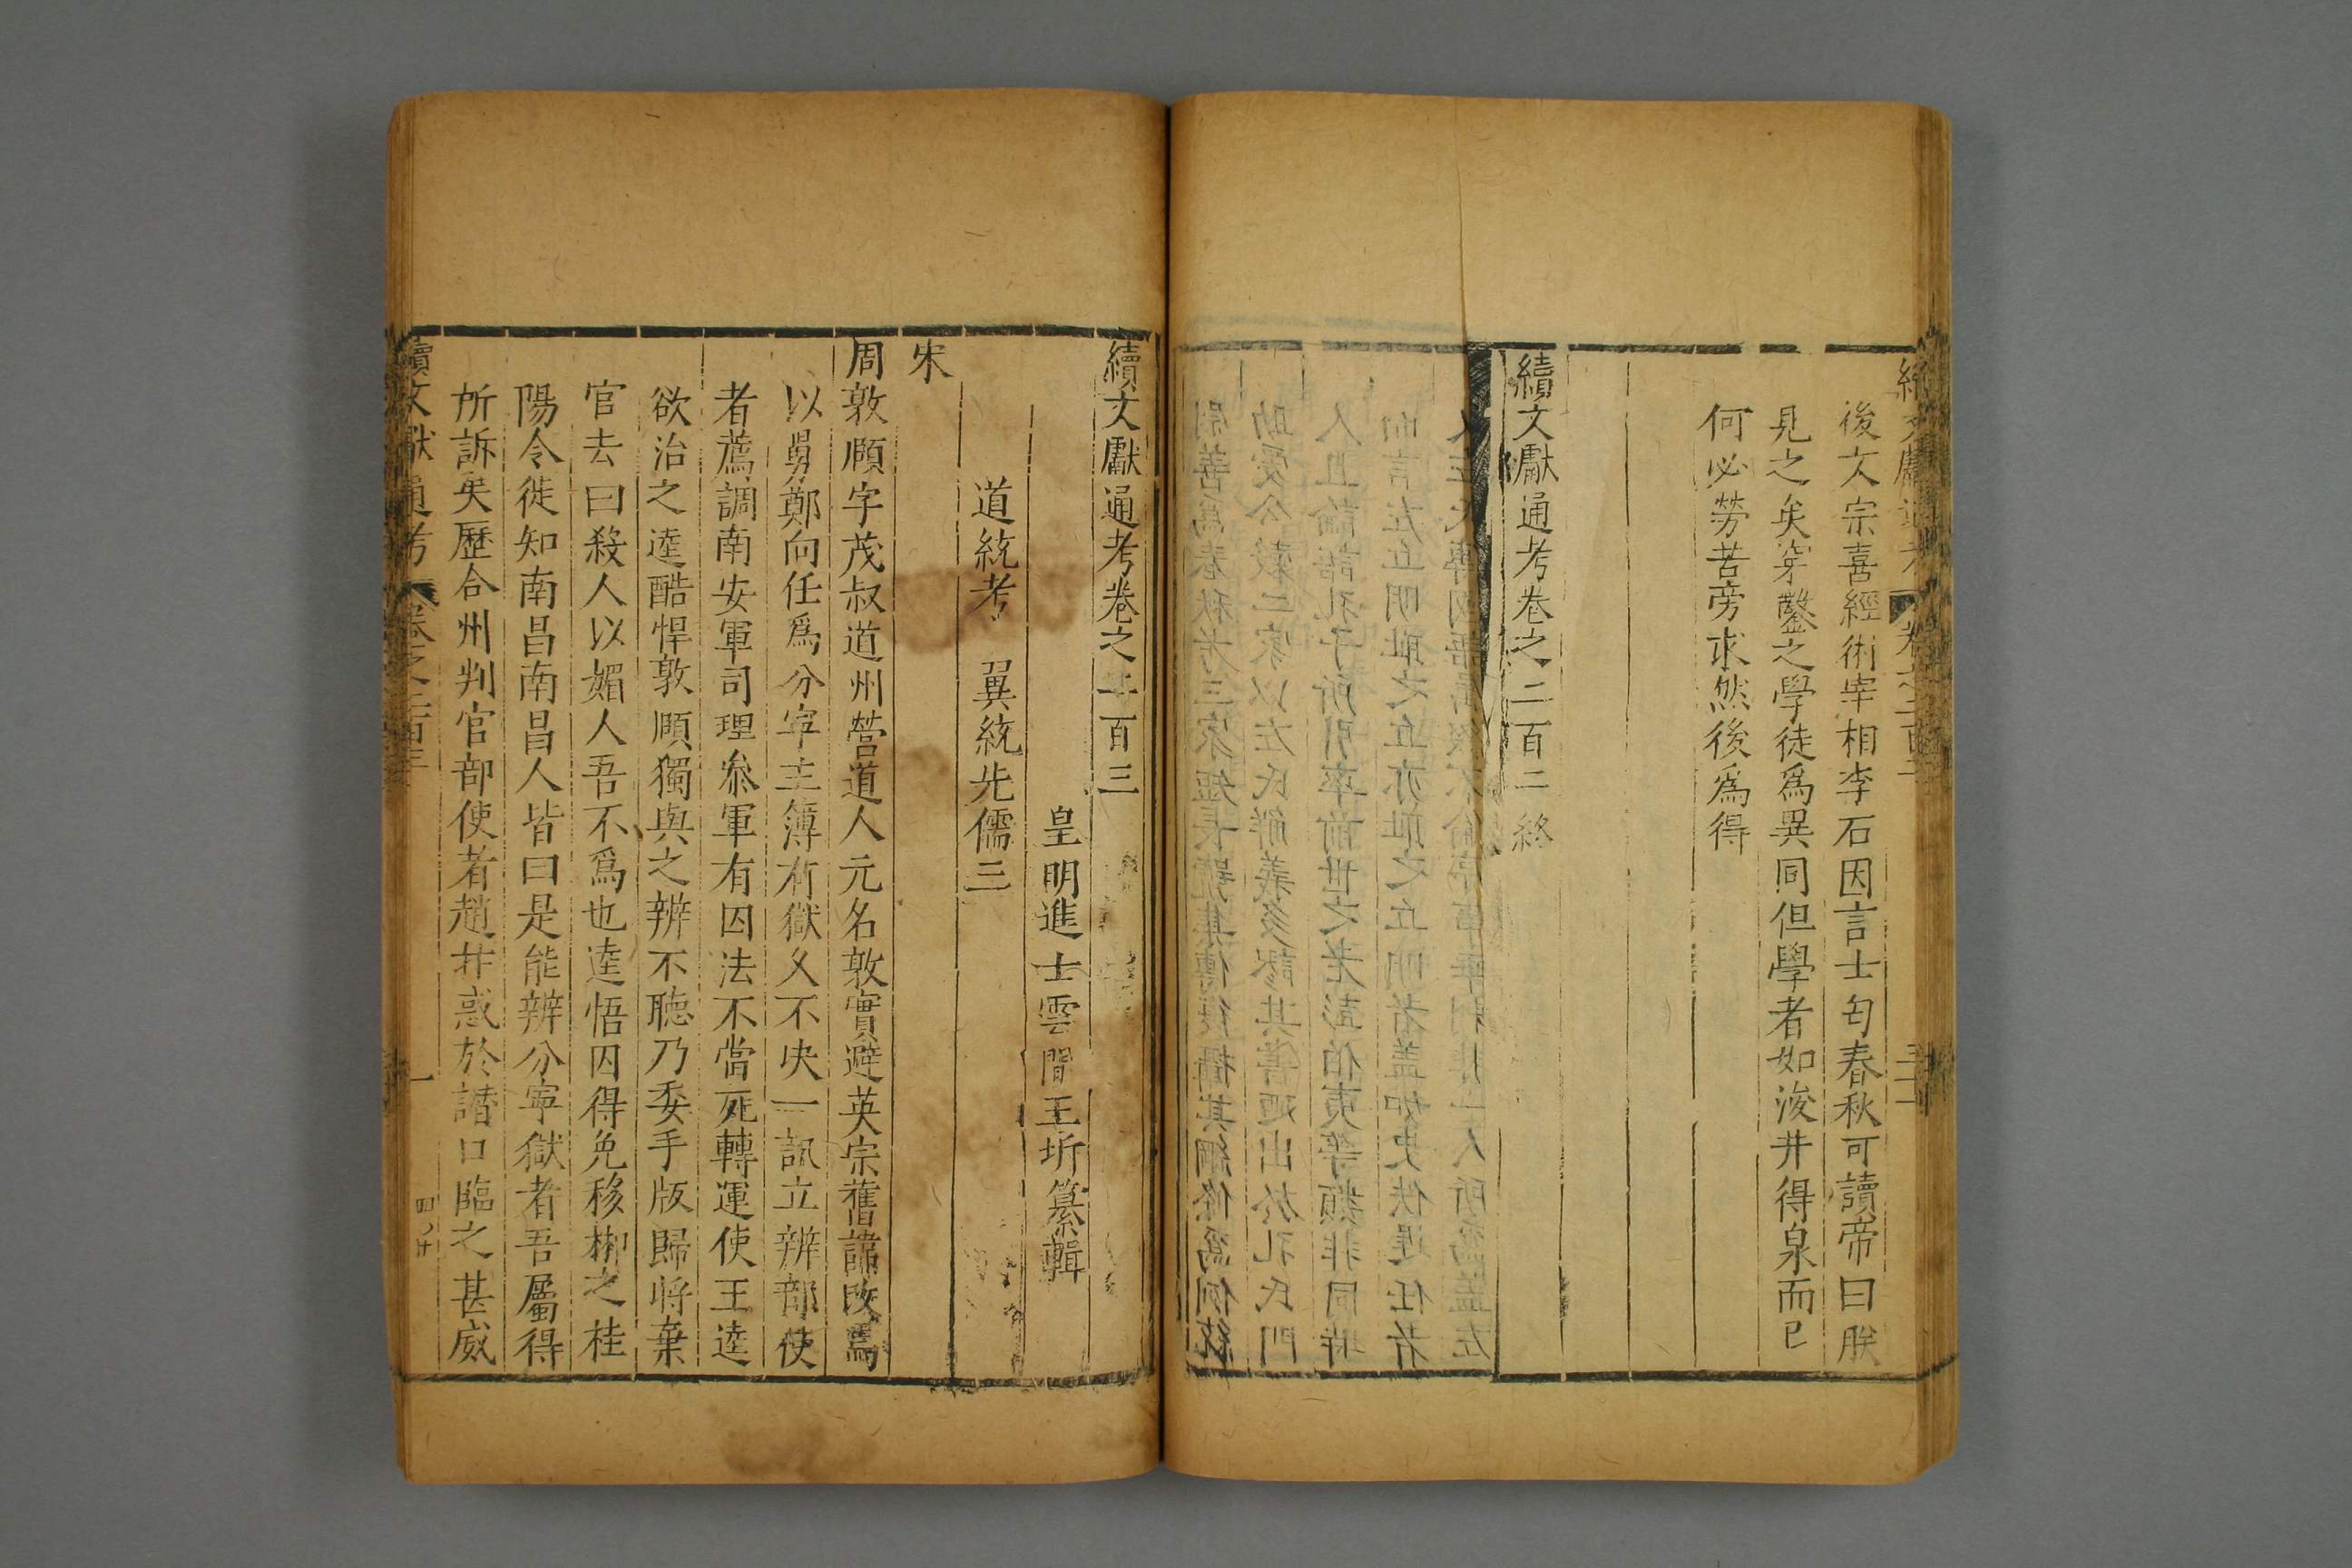 後文宗喜經術宰相李石因言士匄春秋可讀帝曰朕
見之矣穿鑿之學徒爲異同但學者如浚井得泉而已
何必勞苦旁求然後爲得
續文獻通考卷之二百二終
續文獻通考卷之二百三
皇明進士雲間王圻纂輯
道統考 翼統先儒三
宋
周敦頤字茂叔道州營道人元名敦實避英宗舊諱改焉
以舅鄭向任爲分寧主簿有獄久不決一訊立辨部使
者薦調南安軍司理叅軍有囚法不當死轉運使王逵
欲治之逵酷悍敦頤獨與之辨不聽乃委手版歸將棄
官去曰殺人以媚人吾不爲也逵悟囚得免移郴之桂
陽令徙知南昌南昌人皆曰是能辨分寧獄者吾屬得
所訴矣歷合州判官部使者趙抃惑於譖口臨之甚威
續文獻通考 卷之二百三 一